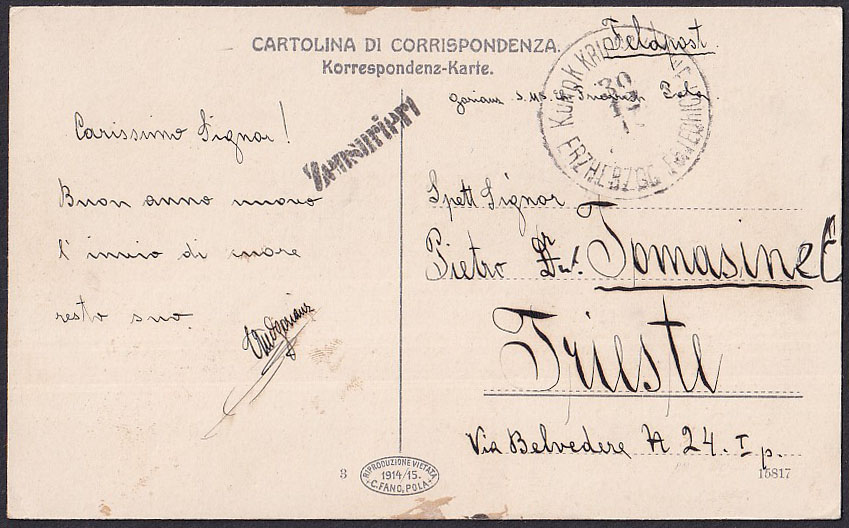 CARTOLINA DI CORRISPONDENZA.
Korrespondenz-Karte.
Feldpost.
S.M.S. Pola.
Zensuriert
K.U.K. ERZHERZOG
30
Carissimo Signor!
Buon anno nuovo
l'invio di cuore
resto suo
Spett Signor
Pietro Tomasine
Trieste
Via Belvedere N 24. I p.
3
RIPRODUZIONE VIETATA
1914/15.
C. FANO, POLA
15817